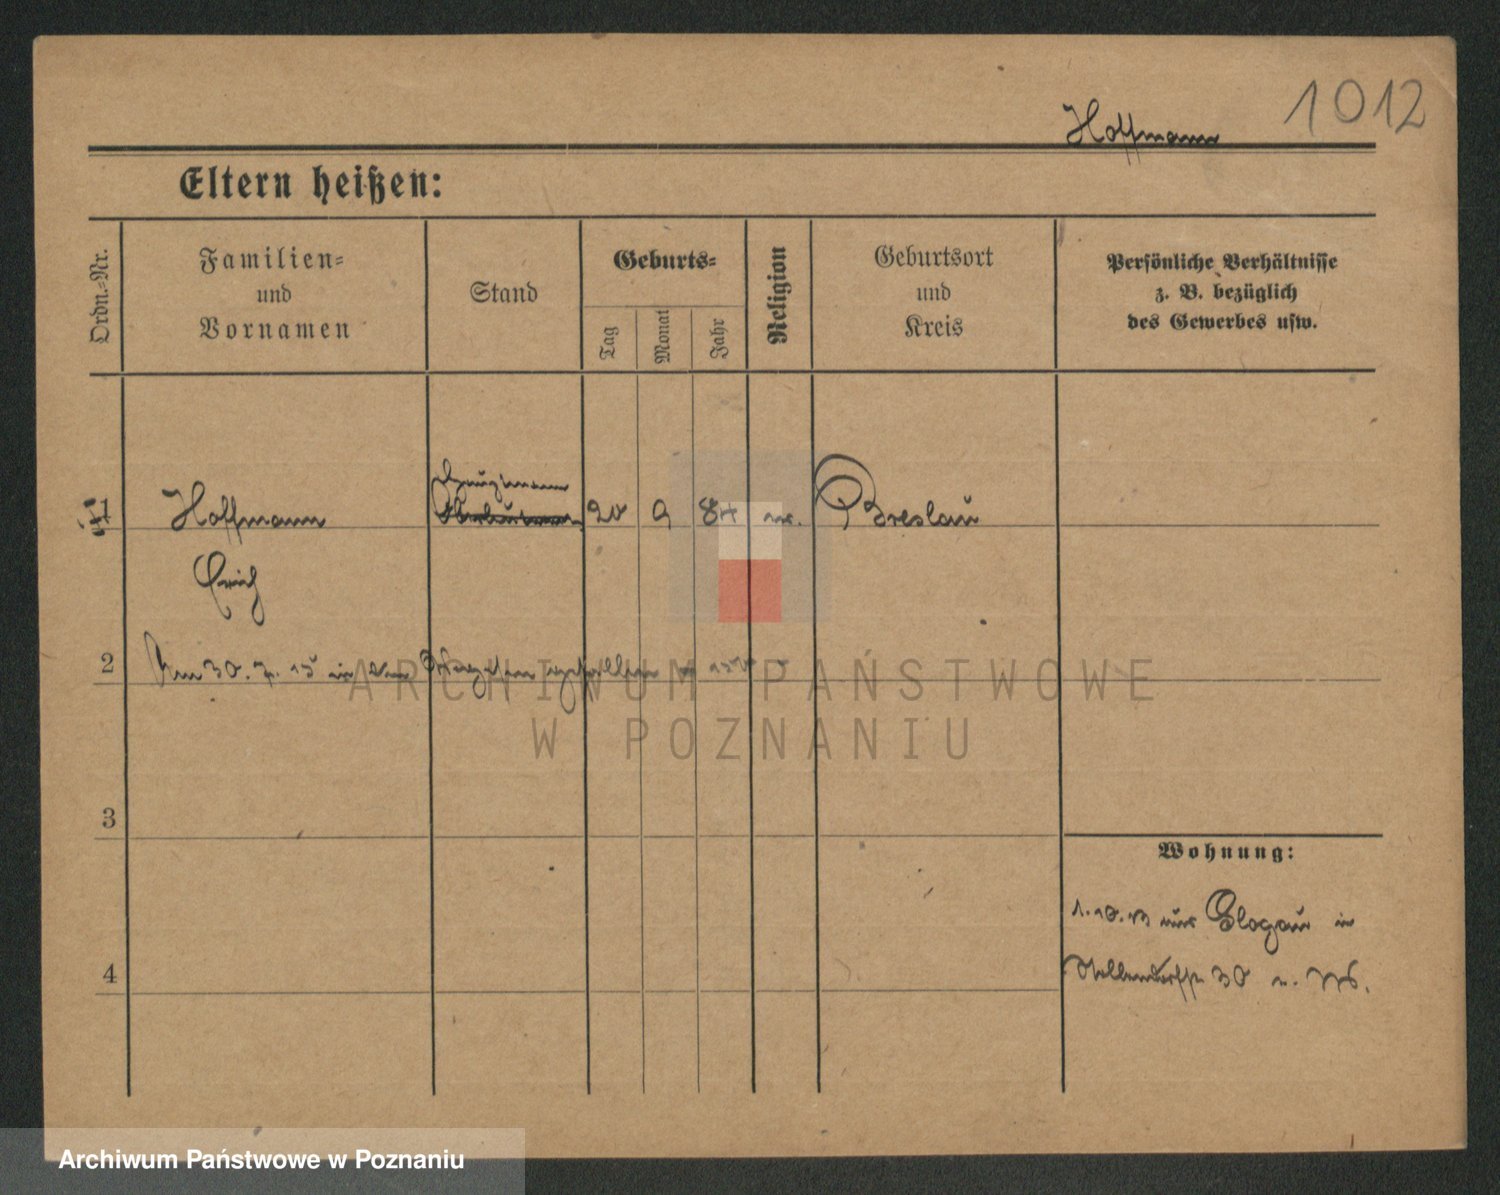 1012
Hoffmann
Eltern heißen:
Ordn.-Nr.
Familien-
und
Vornamen
Stand
Geburts-
Tag
Monat
Jahr
Religion
Geburtsort
und
Kreis
Persönliche Verhältnisse
z. B. bezüglich
des Gewerbes usw.
Hauptmann
1 Hoffmann 20 9 84 Breslau
Erich
2 Am 30. 7. 15 in
3
Wohnung:
1.10.13 aus Glogau in
4
30
ARCHIWUM PAŃSTWOWE
W POZNANIU
Archiwum Państwowe w Poznaniu